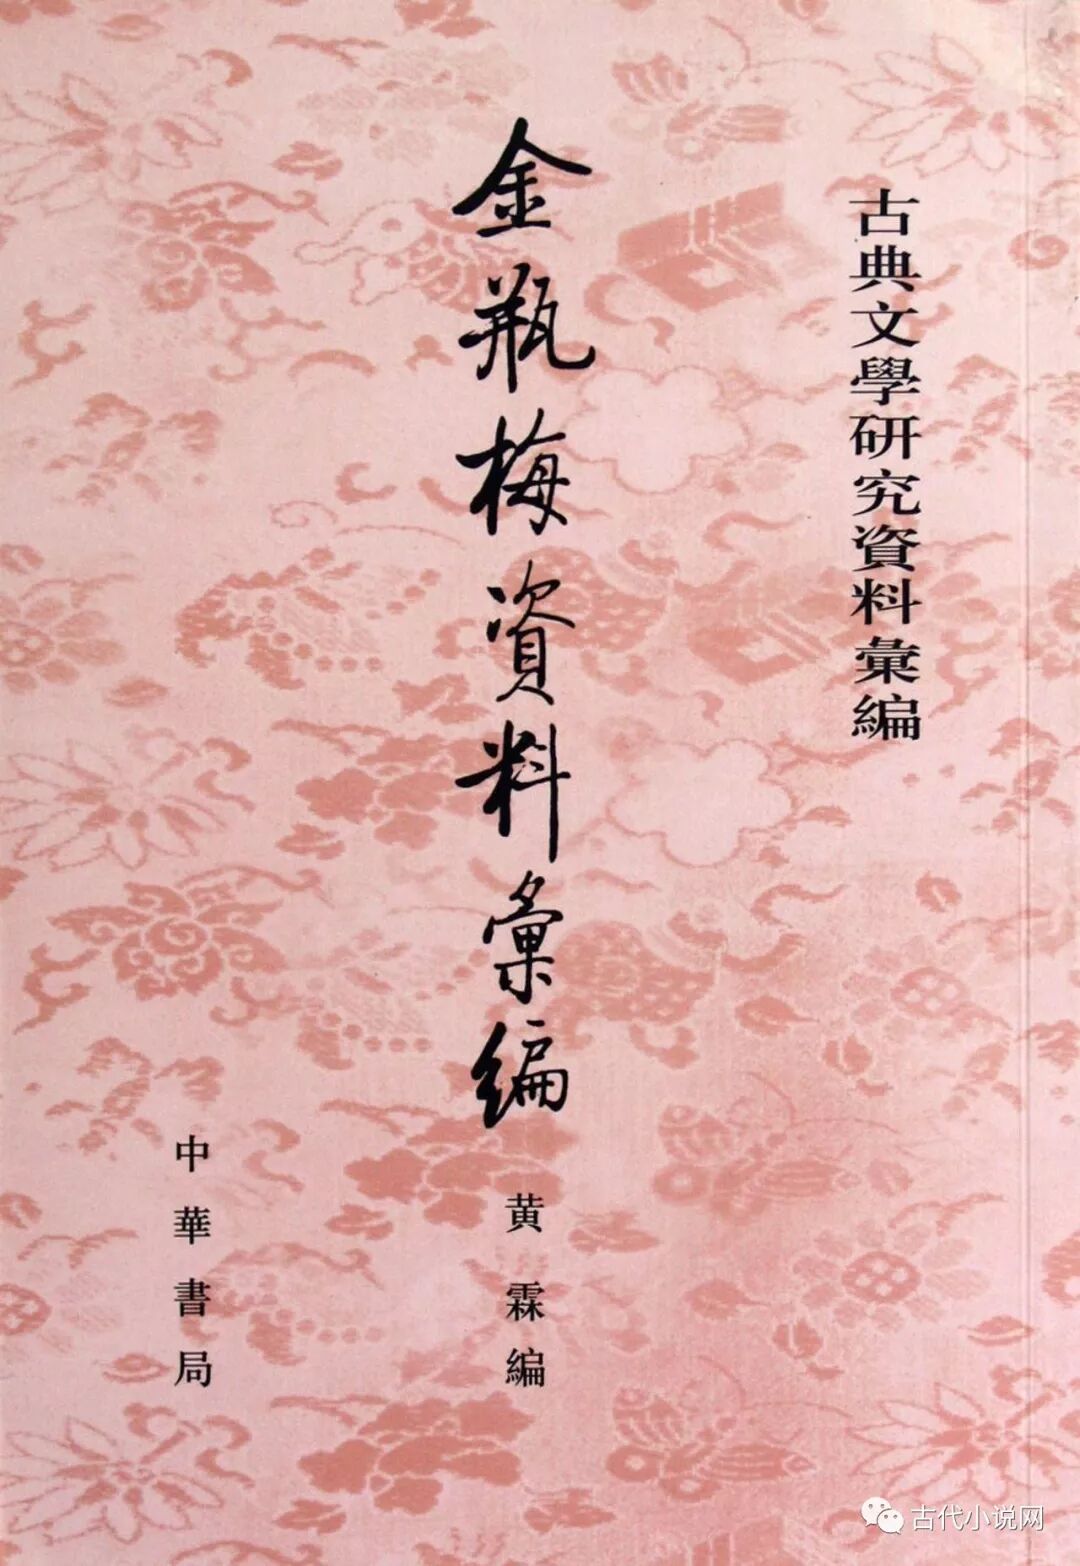 古典文學研究資料彙編
金瓶梅資料彙編
黄霖編
中華書局
古代小说网